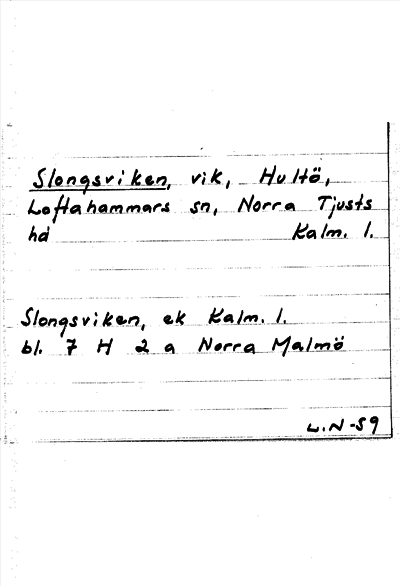 Slongsviken, vik, Hultö,
Loftahammars sn, Norra Tjusts
hd Kalm. l.
Slongsviken, ek Kalm. l.
bl. 7 H 2 a Norra Malmö
L.N-59